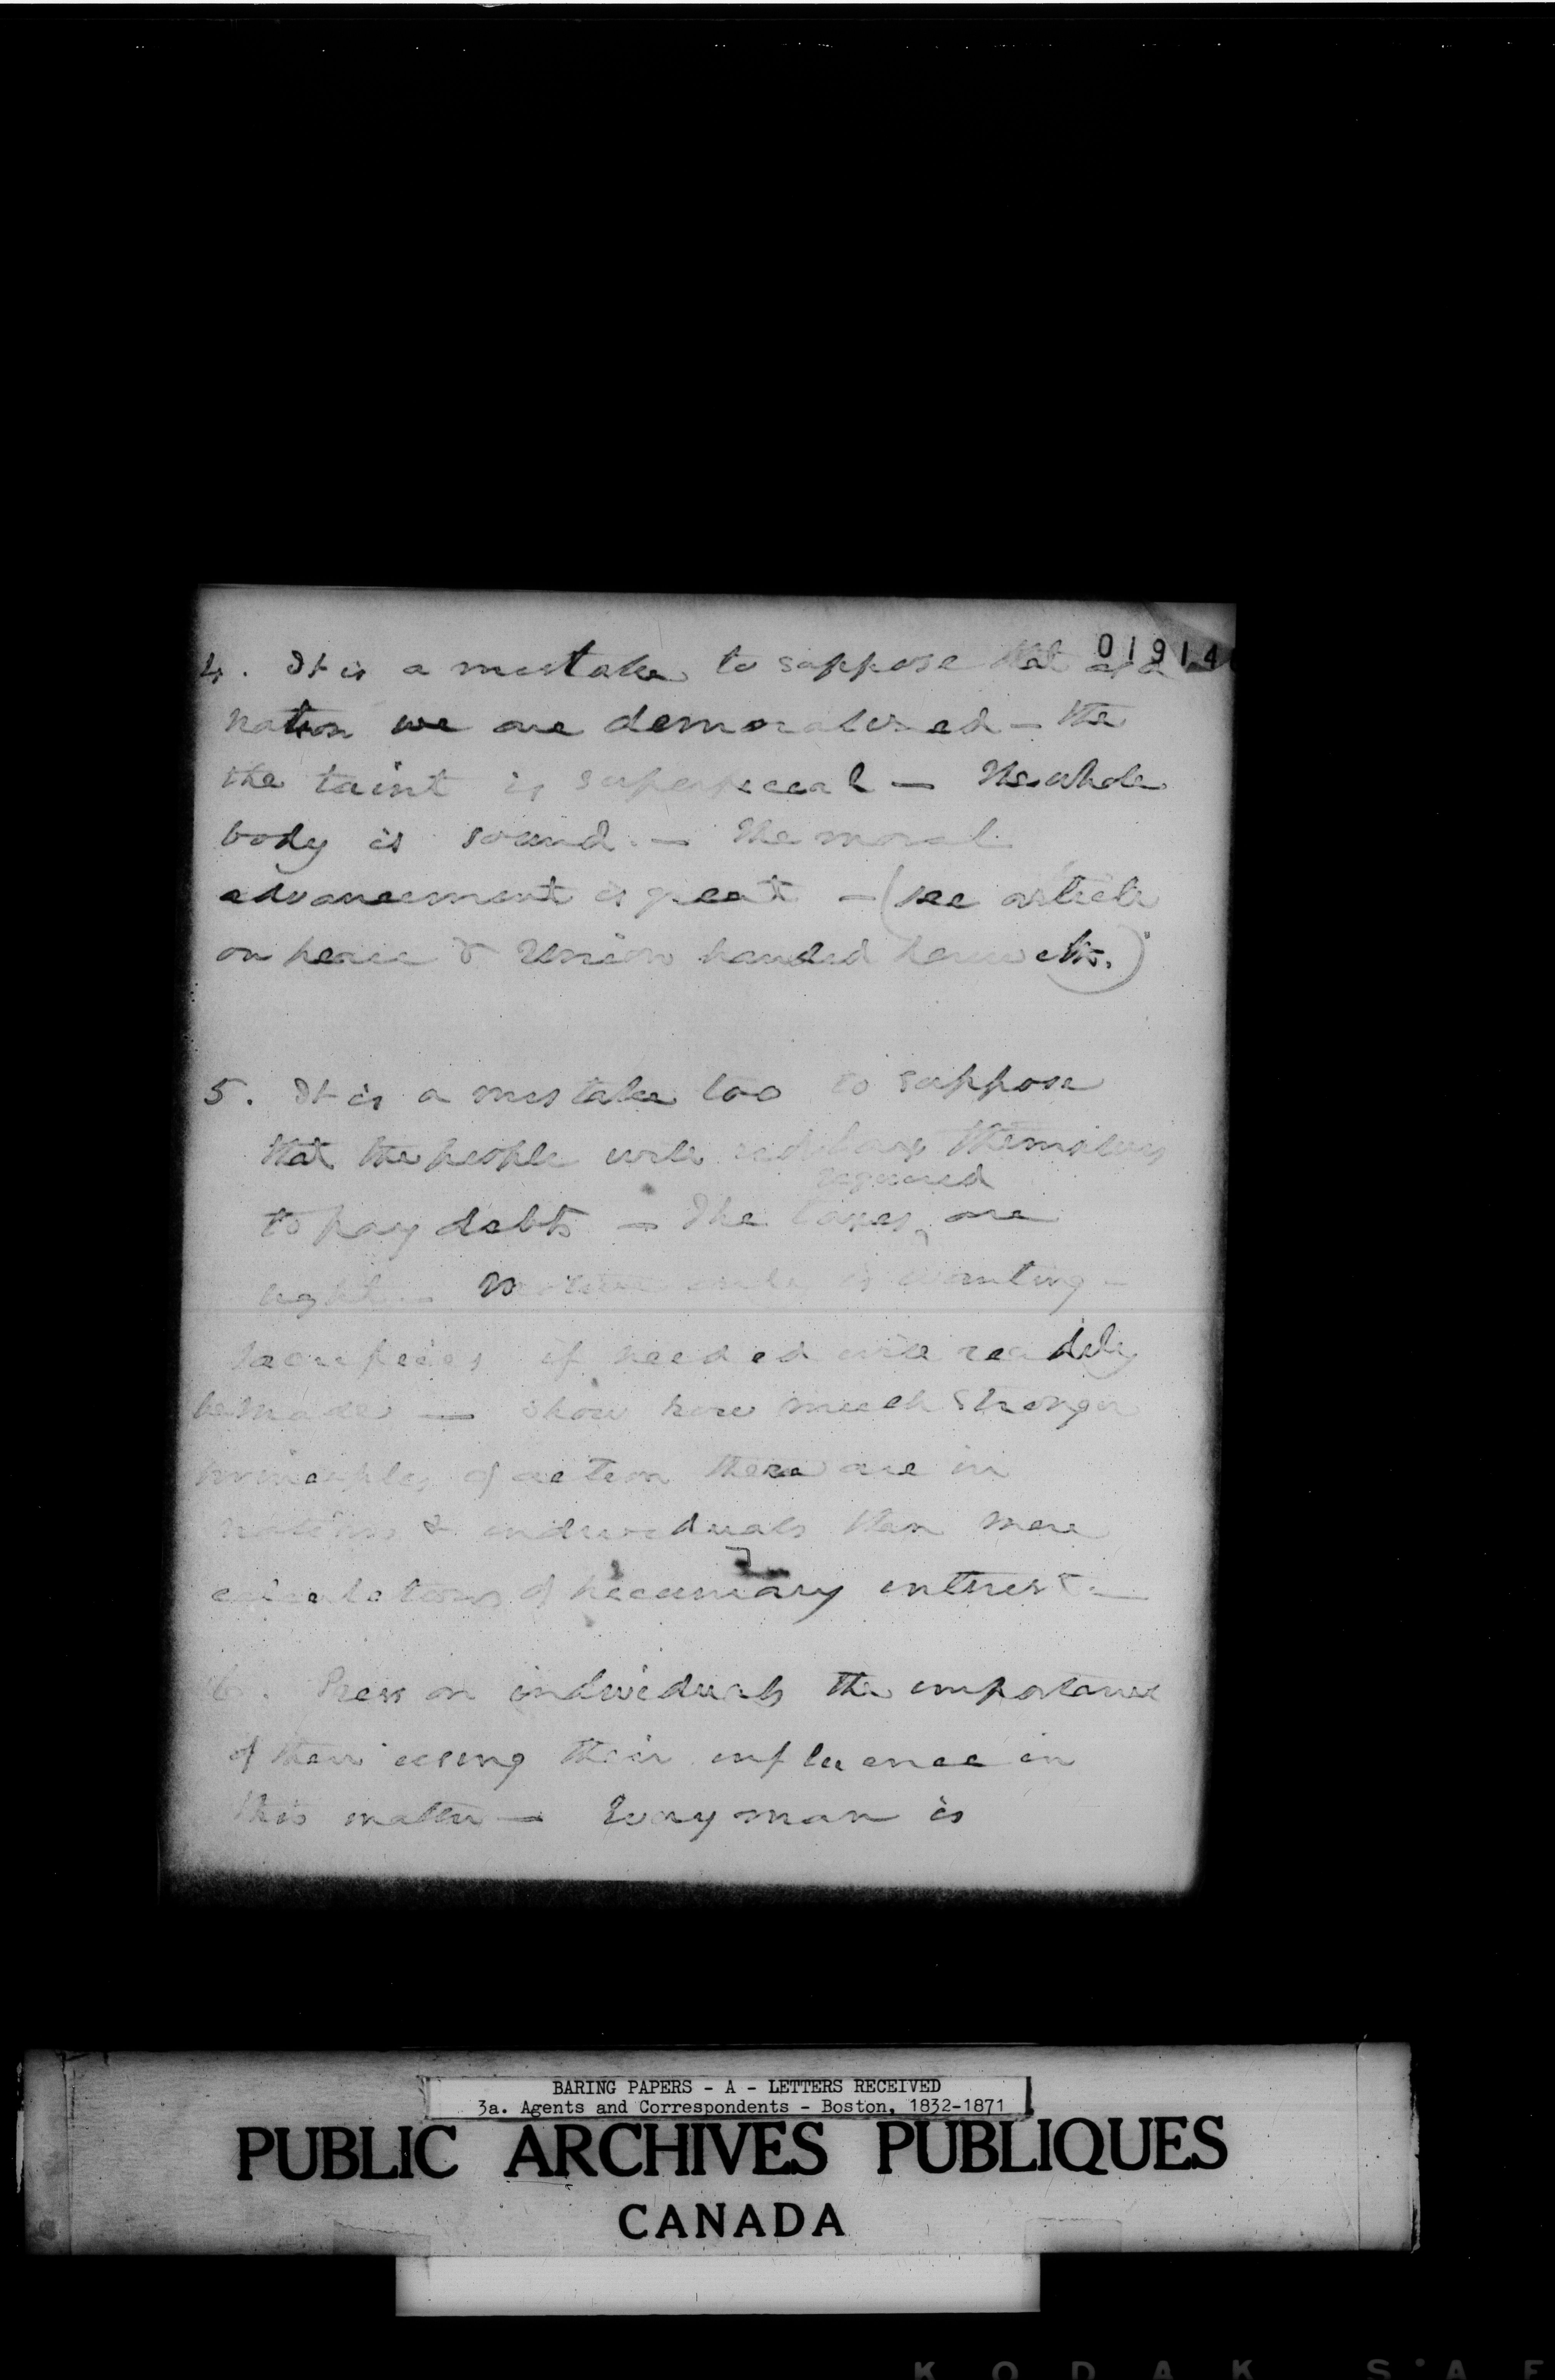 01914
4. It is a mistake to suppose that as a
nation we are demoralized – the
the taint is superficial – The whole
body is sound. – The moral
advancement is great – (see article
on peace & Union handed herewith.)
5. It is a mistake too to suppose
that the people will not tax themselves
required
to pay debts – The taxes are
light – Motive only is wanting –
Sacrifices if needed will readily
be made – Show how much stronger
principles of action there are in
nations & individuals than mere
calculations of pecuniary interest –
6. Press on individuals the importance
of their using their influence in
this matter – Every man is
BARING PAPERS - A - LETTERS RECEIVED
3a. Agents and Correspondents - Boston, 1832-1871
PUBLIC ARCHIVES PUBLIQUES
CANADA
KODAK SAF